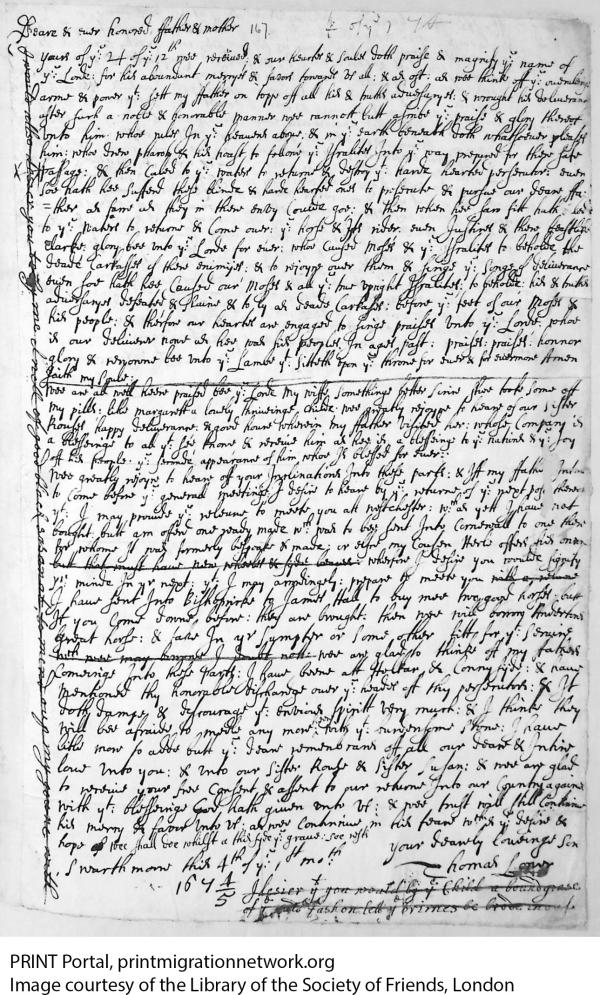 Deare & ever honored ffather & mother 167
yours of ye 24 of ye 12th wee received, & our hearts & soules doth praise & magnify ye name of
ye Lord: for his abundant mercyes & favors towards us all: & as oft as wee think off ye
arme & power yt sett my ffather on topp off all his & truths adversaryes: & wrought his deliverance
after such a noble & honorable manner wee cannott butt ascribe ye praise & glory thereof
unto him: whoe rules In ye heavens above, & in ye earth beneath doth whatsoever pleaseth
him: whoe drew pharoh & his hoast, to follow ye Isralites Into ye way prepared for there safe
passage: & then Caled to ye waters to returne & destroy ye hard hearted persecutor: even
soe hath hee suffered these blinde & hard hearted ons to prosecute & pursue our deare ffa
=ther as farre as they in there envy Coulde goe: & then when hee saw fitt hath
to ye waters to returne & Come over: ye horse & his rider: even Justices & there
Clarke: glory bee unto ye Lorde for ever: whoe caused Moses & ye Isralites to beholde the
deade Carkasses of there enimyes: & to rejoyce over them & singe ye songe of deliverance
even soe hath hee Caused our Moses & all ye true upright Isralites: to beholde: his & truths
adversaryes defeated & slaine & to ly as deade Carkasses: before ye feet of our Moses &
his people: & therfore our heartes are engaged to singe praises unto ye Lorde, whoe
is our deliverer now as hee was his peoples In ages past: praises: praises: honnor
glory & renowne bee unto ye Lambe yt sitteth upon ye throne for ever & for evermore Amen
saith my soule:
wee are all well heere praised bee ye Lord My wiffe somethinge better since shee tooke some off
my pills: like margarett a lovely thriveinge Childe: wee greatly rejoyce to heare of our sister
Rouses happy deliverance: & good house wherein my ffather visited her: whose Company is
a blesseinge to all yt see knowe & receive him as hee is, a blesseing to ye nations & ye Joy
off his people: ye seconde appearance of him whoe Is blessed for ever:
Wee greatly rejoyce to heare off your Inclinations Into these parts: & Iff my ffathr
to Come before ye generall meetinge I desire to heare by ye returne of ye next post
yt I may provide ye to meete you att westchester: wch as yett I have not
bought, butt am offerd one ready made wch was to bee sent Into Cornewall to one
for whome It was formerly bespoke & made; or elce my Cousen offers his owne
butt that must have new wheeles & wherefore I desire you woulde signify
yr minde In yr next: yt I may accordingly: prepare to meete you
I have sent Into Bishopricke to James Hall to buy mee two good horses: butt
If you Come downe, before: they are brought: then wee will borrow
great horse: & take In yr sympter or some other fitt for ye service
wee are glad to thinke off my ffathers
Comeinge Into these parts: I have beene att & Conny syde: & have
mentioned thy honorable dischardge over ye heades off thy persecutors: & It
doth dampe & discourage ye envious spiritt very much: & I thinke they
will bee afraide to medle any more with yt burdensome stone: I have
little more to adde butt ye deare remembrans off all our deare & Intire
love unto you: & unto our sister Rouse & sister Susan: & wee are glad
to receive your free Consent & assent to our returne Into our Country againe
with yt blesseinge God hath given unto us: & wee trust will still Continue
his mercy & favor unto us: as wee Continue in his feare wch is ye desire &
hope wee shall doe whilst a this syde ye grave: soe rests
your dearely Loveinge son
Swarth moore this 4th of ye 1st moth
Thomas Lower
1674/5
PRINT Portal, printmigrationnetwork.org
Image courtesy of the Library of the Society of Friends, London